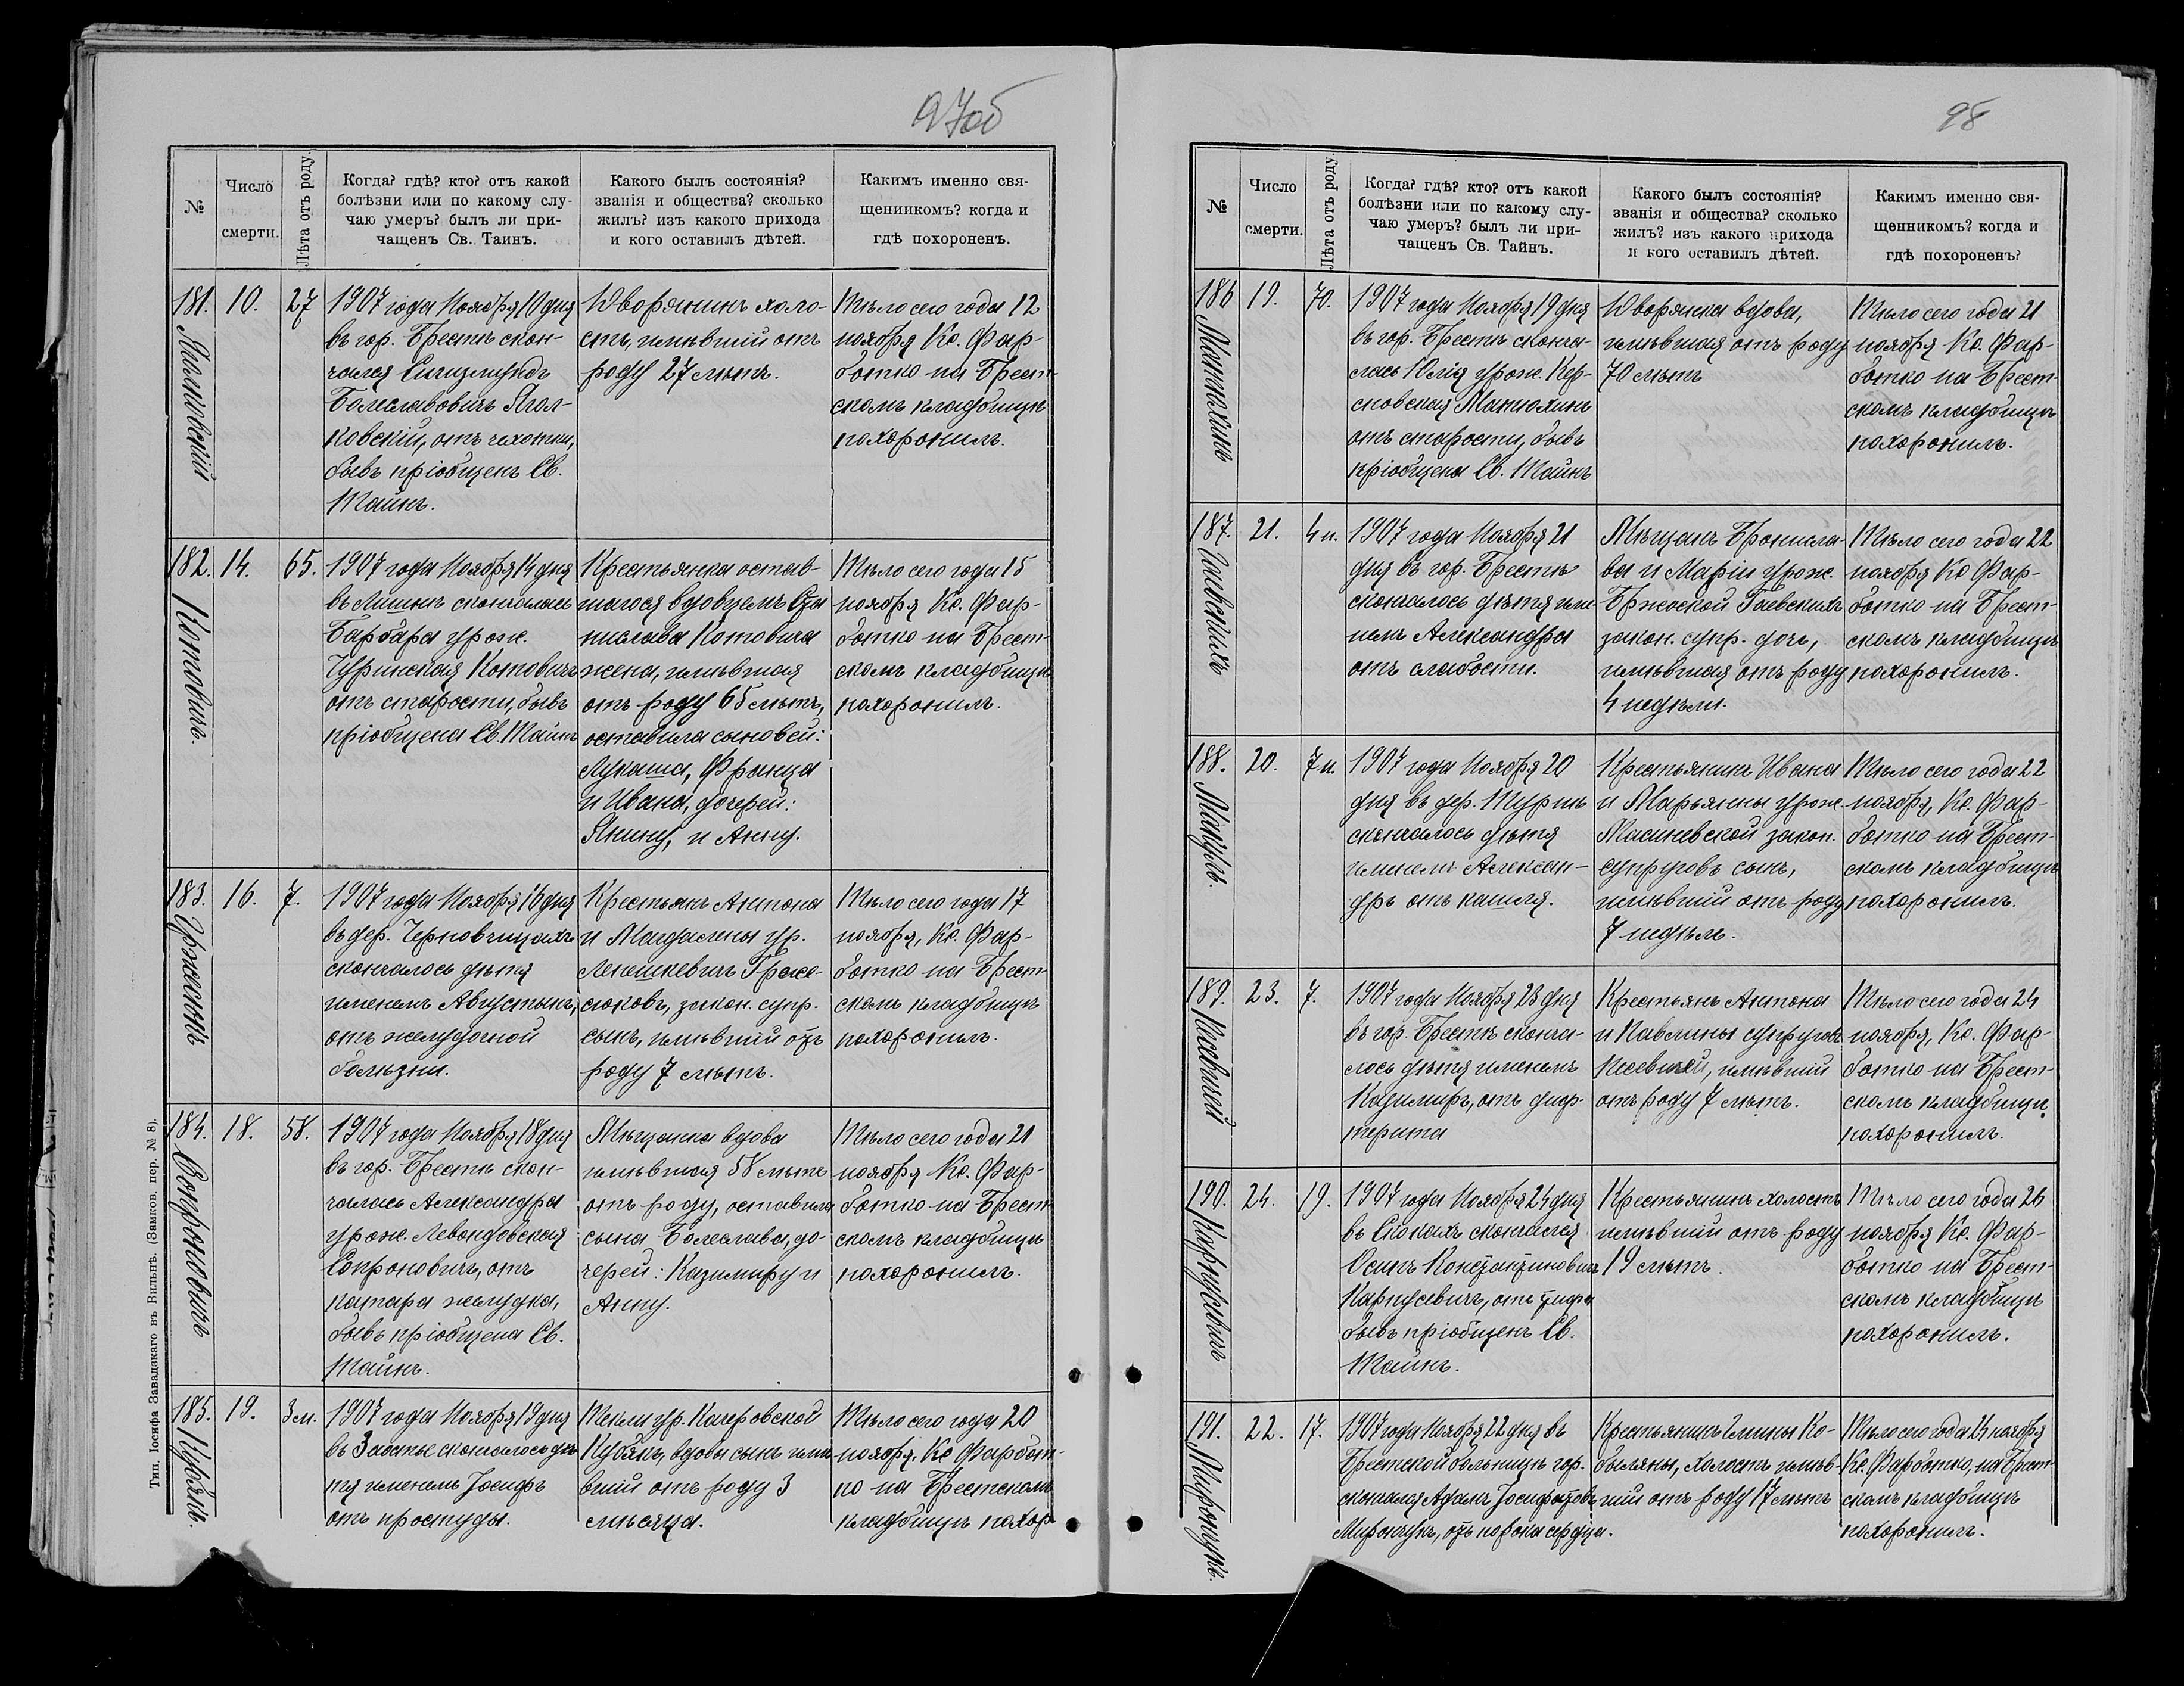 97об
№
Число смерти.
Лѣта отъ роду.
Когда? гдѣ? кто? отъ какой
болѣзни или по какому слу-
чаю умеръ? былъ ли при-
чащенъ Св. Таинъ.
Какого былъ состоянія?
званія и общества? сколько
жилъ? изъ какого прихода
и кого оставилъ дѣтей.
Какимъ именно свя-
щенникомъ? когда и
гдѣ похороненъ.
181. 10. 27
Ягалковскій
1907 года Ноября 10 дня
въ гор. Брестѣ скон-
чался Сигизмундъ
Болеславовичъ Ягал-
ковскій, отъ чахотки,
бывъ пріобщенъ Св.
Тайнъ.
Дворянинъ холо-
стъ, имѣвшій отъ
роду 27 лѣтъ.
Тѣло сего года 12
ноября Кс. Фар-
ботко на Брест-
скомъ кладбищѣ
похоронилъ.
182. 14. 65.
Котовичъ.
1907 года Ноября 14 дня
въ скончалась
Барбара урож.
Цуринская Котовичъ
отъ старости, бывъ
пріобщена Св. Тайнъ
Крестьянка остав-
шагося вдовцемъ Ста
нислава Котовича
жена, имѣвшая
отъ роду 65 лѣтъ,
оставила сыновей:
Лукаша, Франца
и Ивана, дочерей:
Янину, и Анну.
Тѣло сего года 15
ноября Кс. Фар-
ботко на Брест-
скомъ кладбищѣ
похоронилъ.
183. 16. 7.
Гржесюкъ
1907 года Ноября 16 дня
въ дер. Черновчицахъ
скончалось дѣтя
именемъ Августынъ,
отъ желудочной
болѣзни.
Крестьянъ Антона
и Магдалены ур.
Лекешкевичъ Грже-
сюковъ, закон. супр.
сынъ, имѣвшій отъ
роду 7 лѣтъ.
Тѣло сего года 17
ноября, Кс. Фар-
ботко на Брест-
скомъ кладбищѣ
похоронилъ.
184. 18. 58.
Сопроновичъ
1907 года Ноября 18 дня
въ гор. Брестѣ скон-
чалась Александра
урож. Левандовская
Сопроновичъ, отъ
катара желудка,
бывъ пріобщена Св.
Тайнъ.
Мѣщанка вдова
имѣвшая 58 лѣтъ
отъ роду, оставила
сына Болеслава, до-
черей: Казимиру и
Анну.
Тѣло сего года 21
ноября Кс. Фар-
ботко на Брест-
скомъ кладбищѣ
похоронилъ.
185. 19. 3 м.
1907 года Ноября 19 дня
въ скончалось дѣ
тя именемъ Іосифъ
отъ простуды.
Теклы ур. Качеровской
вдовы сынъ имѣ
вшій отъ роду 3
мѣсяца.
Тѣло сего года 20
ноября, Кс. Фарбот-
ко на Брестскомъ
кладбищѣ похор
Тип. Іосифа Завадзкаго въ Вильнѣ. (Замков. пер. № 8).
98
№
Число смерти.
Лѣта отъ роду.
Когда? гдѣ? кто? отъ какой
болѣзни или по какому слу-
чаю умеръ? былъ ли при-
чащенъ Св. Тайнъ.
Какого былъ состоянія?
званія и общества? сколько
жилъ? изъ какого прихода
и кого оставилъ дѣтей.
Какимъ именно свя-
щенникомъ? когда и
гдѣ похороненъ?
186 19. 70.
Матюхинъ
1907 года Ноября 19 дня
въ гор. Брестѣ сконча-
лась Юлія урож. Кер-
сновская Матюхинъ
отъ старости, бывъ
пріобщена Св. Тайнъ
Дворянка вдова,
имѣвшая отъ роду
70 лѣтъ
Тѣло сего года 21
ноября Кс. Фар-
ботко на Брест-
скомъ кладбищѣ
похоронилъ.
187. 21. 4 н.
Гаевскихъ
1907 года Ноября 21
дня въ гор. Брестѣ
скончалось дѣтя име
немъ Александра
отъ слабости.
Мѣщанъ Бронисла-
ва и Маріи урож.
Бржоской Гаевскихъ
закон. супр. дочь,
имѣвшая отъ роду
4 недѣли.
Тѣло сего года 22
ноября Кс Фар-
ботко на Брест-
скомъ кладбищѣ
похоронилъ.
188. 20. 7 н.
1907 года Ноября 20
дня въ дер. Турнѣ
скончалось дѣтя
именемъ Алексан-
дръ отъ кашля.
Крестьянинъ Ивана
и Марьянны урож.
Масиневской закон.
супруговъ сынъ,
имѣвшій отъ роду
7 недѣль.
Тѣло сего года 22
ноября, Кс. Фар-
ботко на Брест-
скомъ кладбищѣ
похоронилъ.
189. 23. 7.
1907 года Ноября 23 дня
въ гор. Брестѣ сконча-
лось дѣтя именемъ
Казимиръ, отъ диф-
терита
Крестьянъ Антона
и Павлины супруговъ
имѣвшій
отъ роду 7 лѣтъ.
Тѣло сего года 24
ноября, Кс. Фар-
ботко на Брест-
скомъ кладбищѣ
похоронилъ.
190. 24. 19.
Карпусевичъ
1907 года Ноября 24 дня
въ Скокахъ скончался
Осипъ Константиновичъ
Карпусевичъ, отъ тифа
бывъ пріобщенъ Св.
Тайнъ.
Крестьянинъ холостъ
имѣвшій отъ роду
19 лѣтъ.
Тѣло сего года 26
ноября Кс. Фар-
ботко на Брест-
скомъ кладбищѣ
похоронилъ.
191. 22. 17.
Мирончукъ.
1907 года Ноября 22 дня въ
Брестской больницѣ гор.
скончался Адамъ
Мирончукъ, отъ порока сердца.
Крестьянинъ Гмины Ко-
быляны, холостъ имѣв-
шій отъ роду 17 лѣтъ
Тѣло сего года 24 ноября
Кс. Фарботко, на Брест-
скомъ кладбищѣ
похоронилъ.